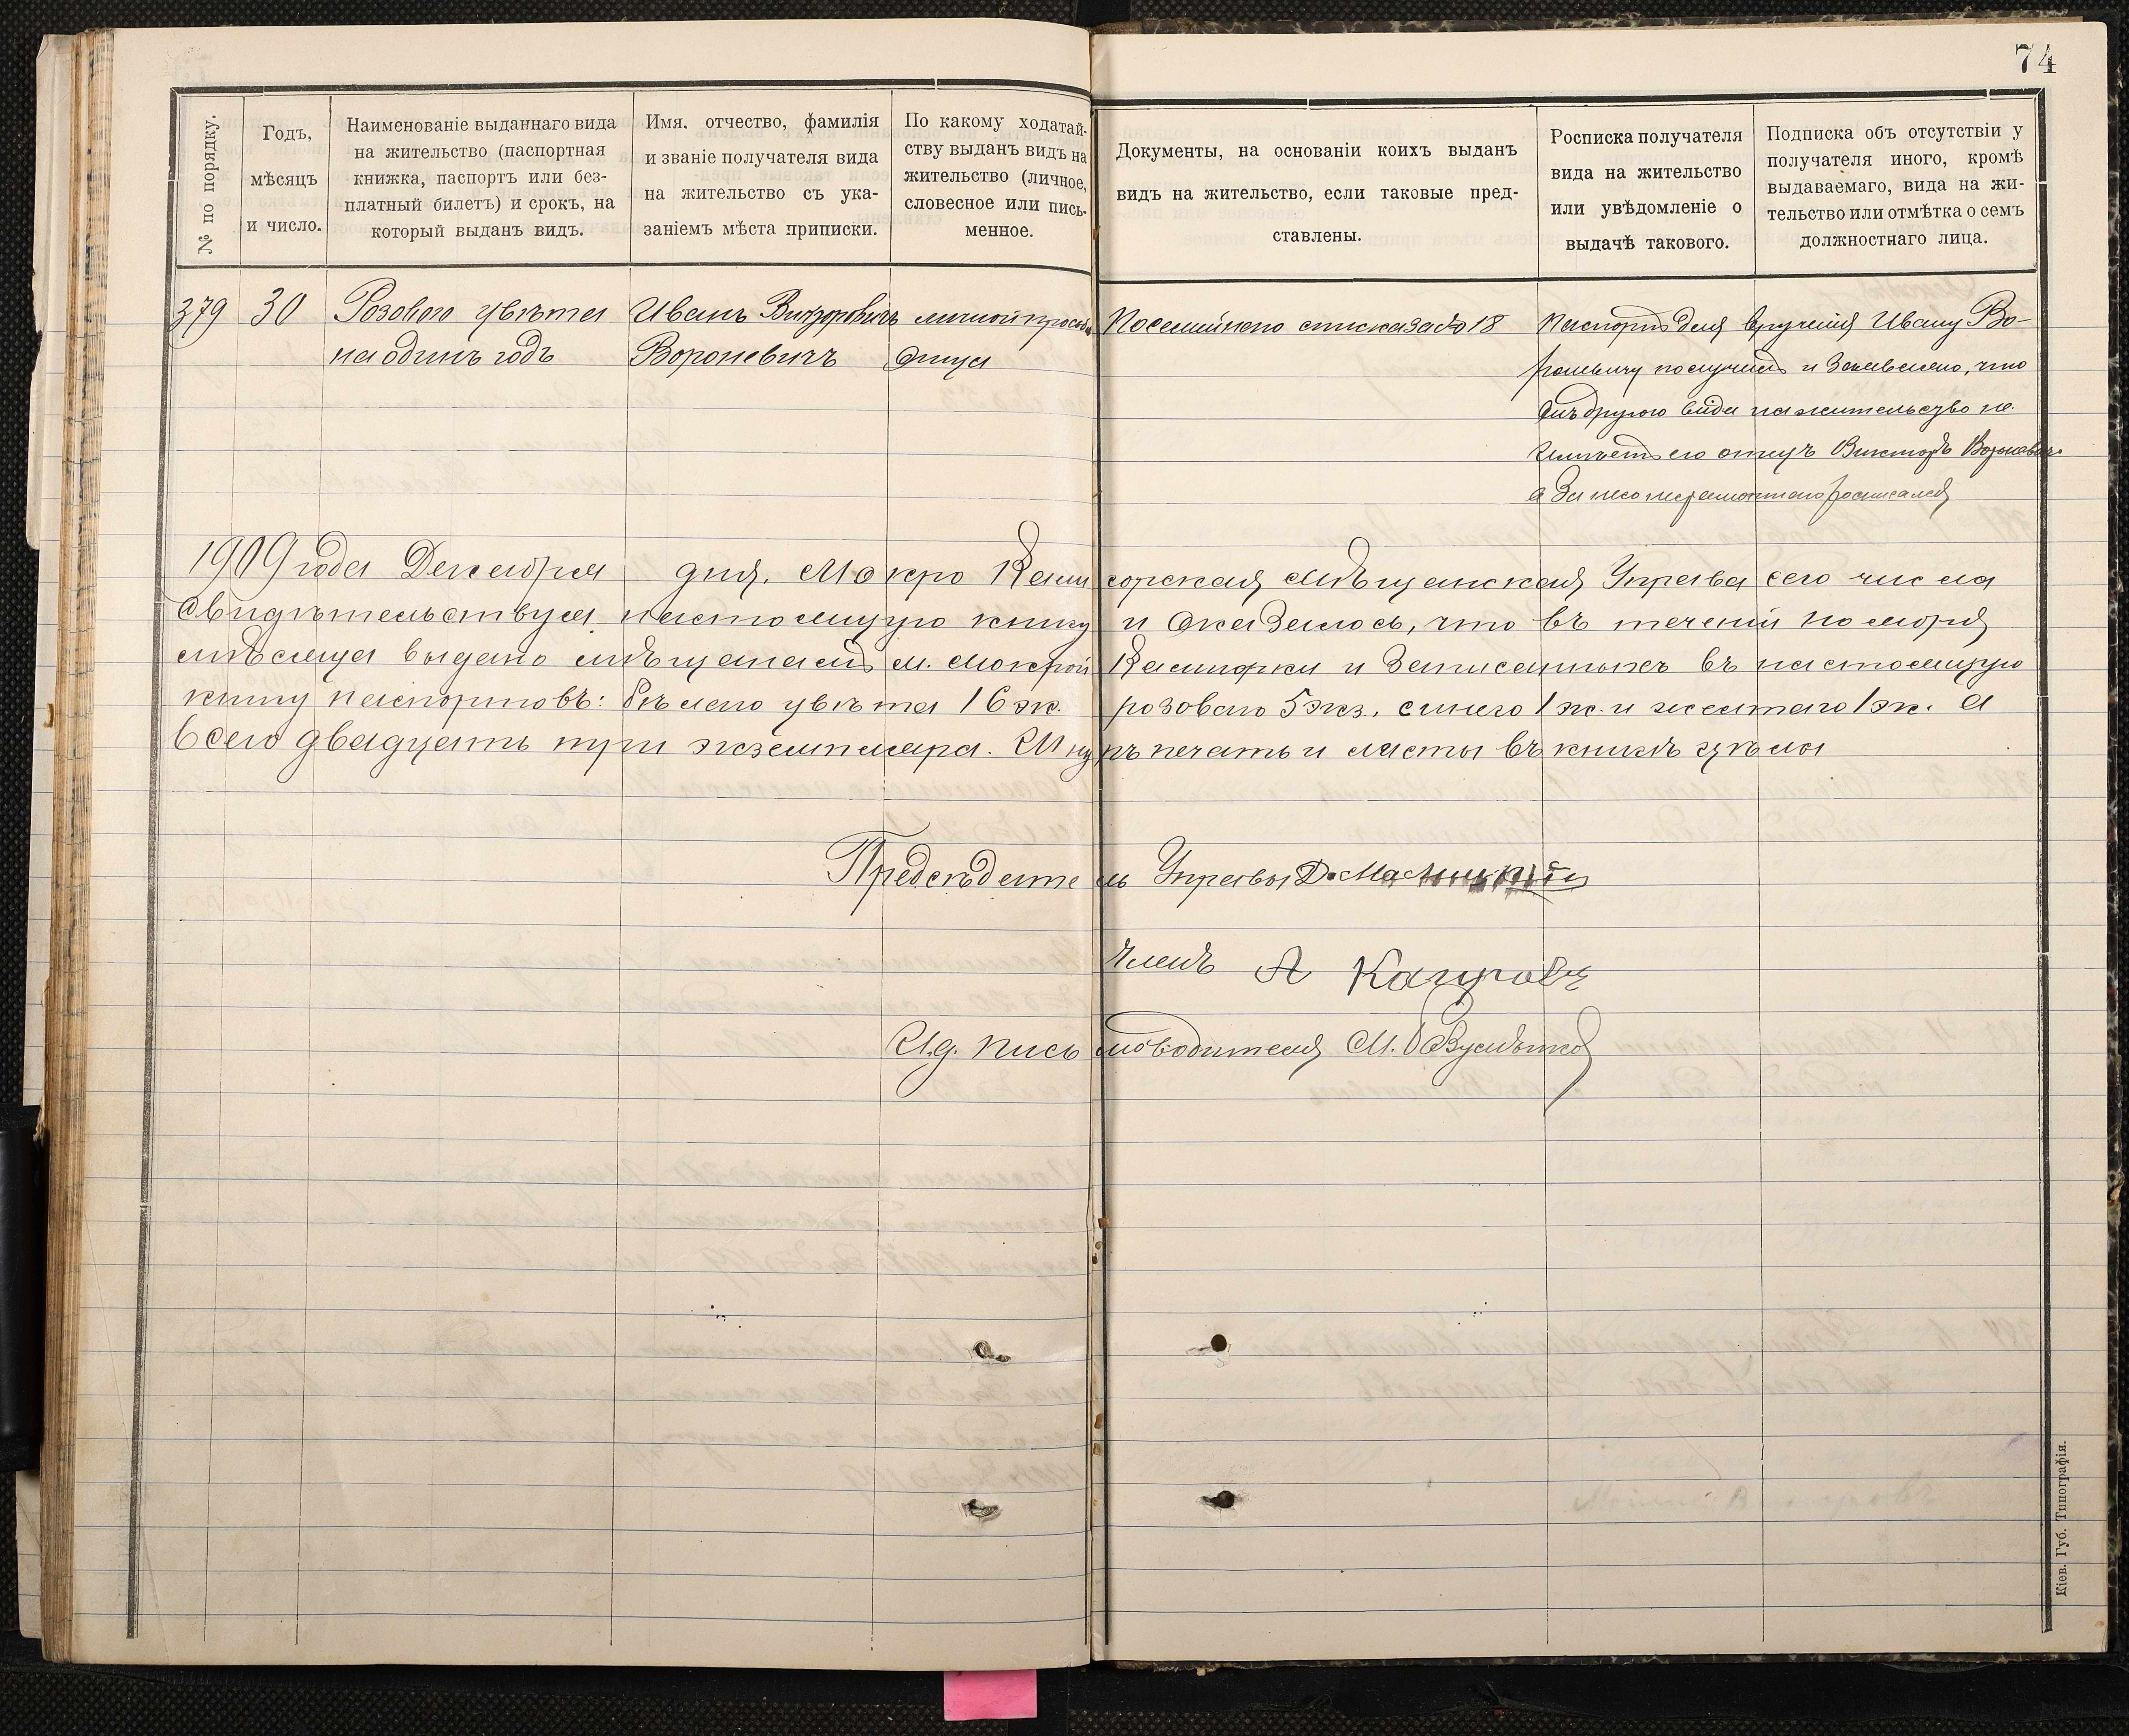 74
№ по порядку.
Годъ,
мѣсяцъ
и число.
Наименованіе выданнаго вида
на жительство (паспортная
книжка, паспортъ или без-
платный билетъ) и срокъ, на
который выданъ видъ.
Имя, отчество, фамилія
и званіе получателя вида
на жительство съ ука-
заніемъ мѣста приписки.
По какому ходатай-
ству выданъ видъ на
жительство (личное,
словесное или пись-
менное.
Документы, на основаніи коихъ выданъ
видъ на жительство, если таковые пред-
ставлены.
Росписка получателя
вида на жительство
или увѣдомленіе о
выдачѣ такового.
Подписка объ отсутствіи у
получателя иного, кромѣ
выдаваемаго, вида на жи-
тельство или отмѣтка о семъ
должностнаго лица.
379
30
Розоваго цвѣта
на одинъ годъ
Иванъ Викторовичъ
Вороневичъ
личной просьбѣ
отца
Посемейнаго списка за № 18
Паспортъ для врученія Ивану Во-
роневичу получилъ и Заявляю, что
онъ другого вида на жительство не
имѣетъ его отецъ Викторъ Вороневичъ
а За него неграмотнаго росписался
1909 года Декабря дня. Мокро Калигорская Мѣщанская Управа сего числа
свидѣтельствуя настоящую книгу и оказалось, что въ теченіи ноября
мѣсяца выдано мѣщанамъ м. Мокрой Калигорки и Записанныхъ въ настоящую
книгу паспортовъ: бѣлаго цвѣта 16 эк. розоваго 5 экз., синяго 1 эк. и желтаго 1 эк. а
всего двадцать три экземпляра. Шнуръ печать и листы въ книгѣ цѣлы
Предсѣдатель Управы Д.
Членъ А
И.д. письмоводителя М.
Кіев. Губ. Типографія.